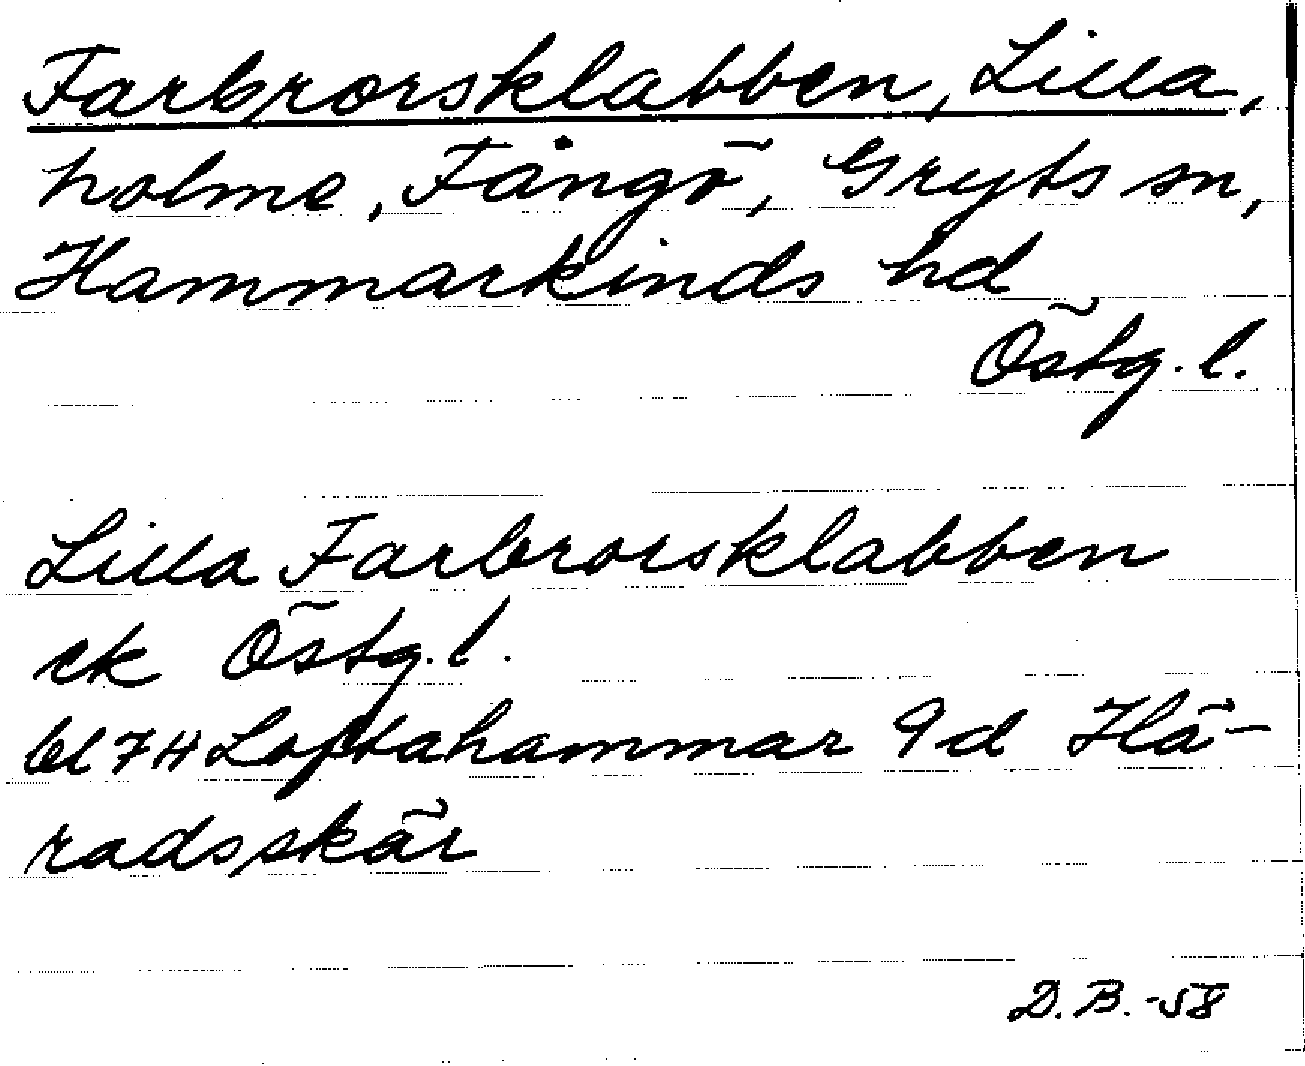 Farbrorsklabben, Lilla,
holme, Fångö, Gryts sn,
Hammarkinds hd
Östg. l.
Lilla Farbrorsklabben
ek Östg. l.
bl 7H Loftahammar 9d Hä-
radsskär
D. B. -58